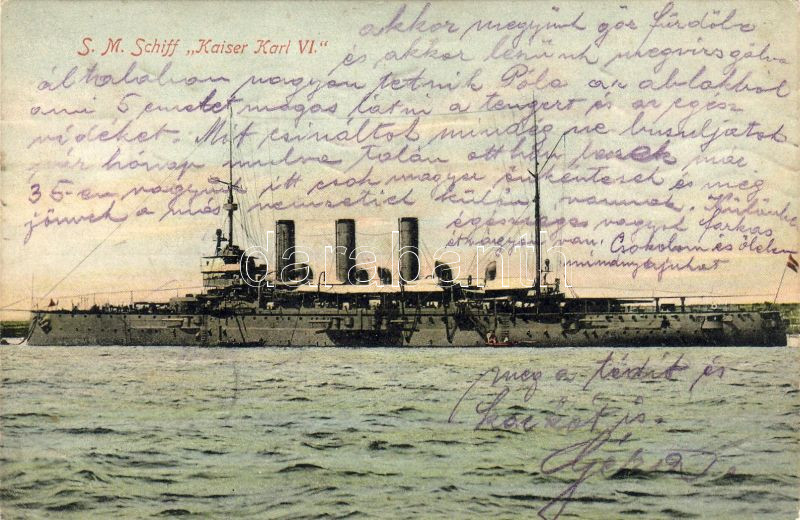 S. M. Schiff „Kaiser Karl VI."
akkor megyünk göz fürdöbe
és akkor leszünk megvizsgálva
általában nagyon tetnik Póla az ablakbol
ami 5 emelet magas látni a tengert és az egész
vidéket. Mit csináltok mindég ne busuljatok
pár hónap mulva talán otthon leszek már
35-en vagyunk itt csak magyar önkéntesek és még
jönnek a más nemzetiek külön vannak. Különben
egészséges vagyok farkas
étvágyam van. Csokolom és ölelem
mindnyájukat
darabanth
meg a Tédit és
is.